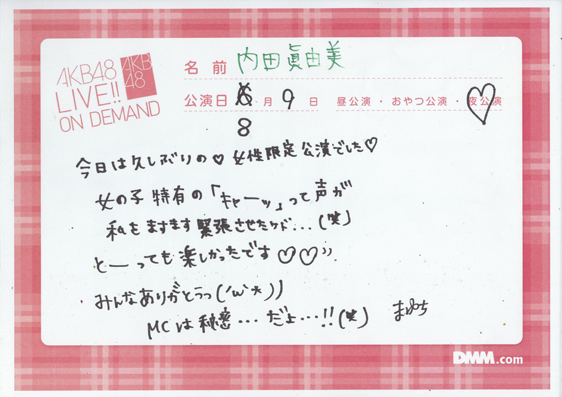 AKB48
LIVE!!
ON DEMAND
AKB
48
名前 内田眞由美
公演日 8月9日 昼公演・おやつ公演・夜公演
今日は久しぶりの♡女性限定公演でした♡
女の子特有の「キャーッ」って声が
私をますます緊張させたけど…(笑)
とーっても楽しかったです♡♡))
みんなありがとうっ('ω'*))
MCは秘密…だよ…!!(笑)
DMM.com